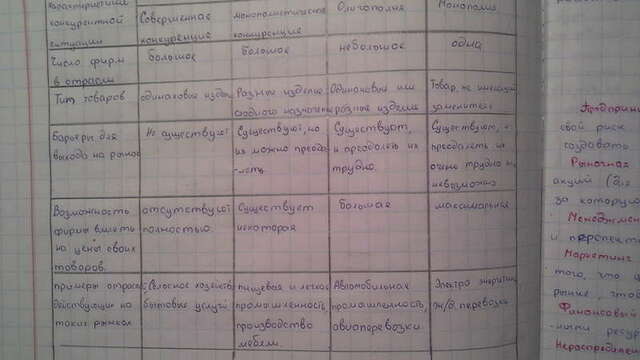 характеристики конкурентной ситуации
Совершенная конкуренция
монополистическая конкуренция
Олигополия
Монополия
Число фирм в отрасли
большое
большое
небольшое
одна
Тип товаров
одинаковые изделия
Разные изделие сходного назначения
Одинаковые или разные изделия
Товар, не имеющий заменителей
барьеры для выхода на рынок
Не существует
Существуют, но их можно преодо-леть
Существуют, и преодолеть их трудно.
Существуют, преодолеть их очень трудно и невозможно
Возможность фирмы влиять на цены своих товаров.
отсутствует полностью.
Существует некоторая
большая
максимальная
примеры отрасл действующих на таких рынках
Сельское хозяйство бытовые услуги
пищевая и легкая промышленность, производство мебели.
Автомобильная промышленность, авиаперевозки
Электро энергетик ж/д. перевозки
свой риск
создавать
Рыночная
акций
за которую
Менеджмен
и перспект
Маркетинг
того, что
рынке, что
Финансовый
ными ресур
Нераспределен